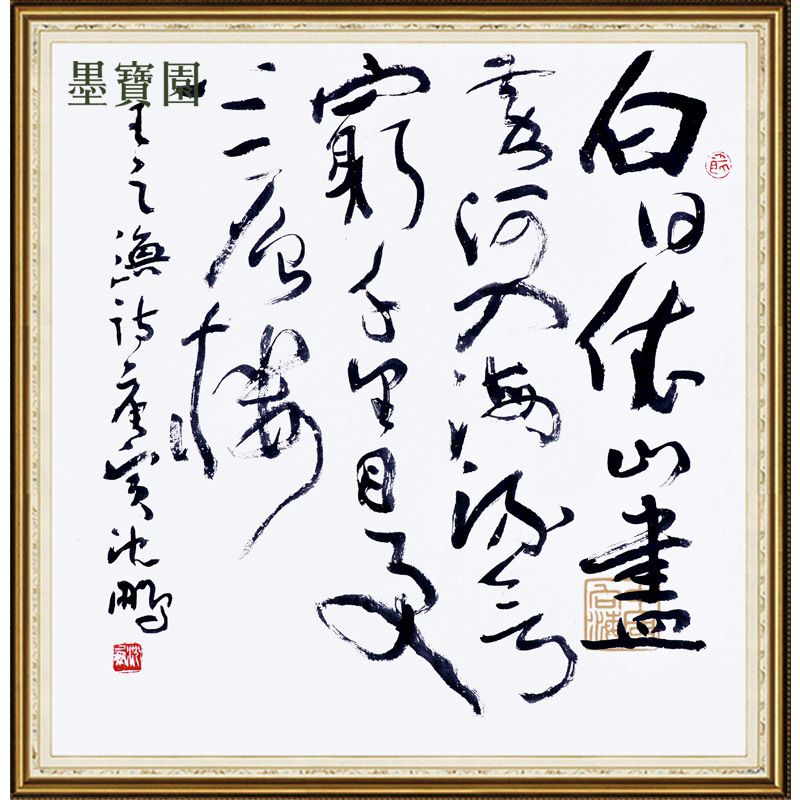 墨寶園
白日依山盡
黄河入海流欲
窮千里目更
上一层樓
王之渙詩庚寅沈鵬